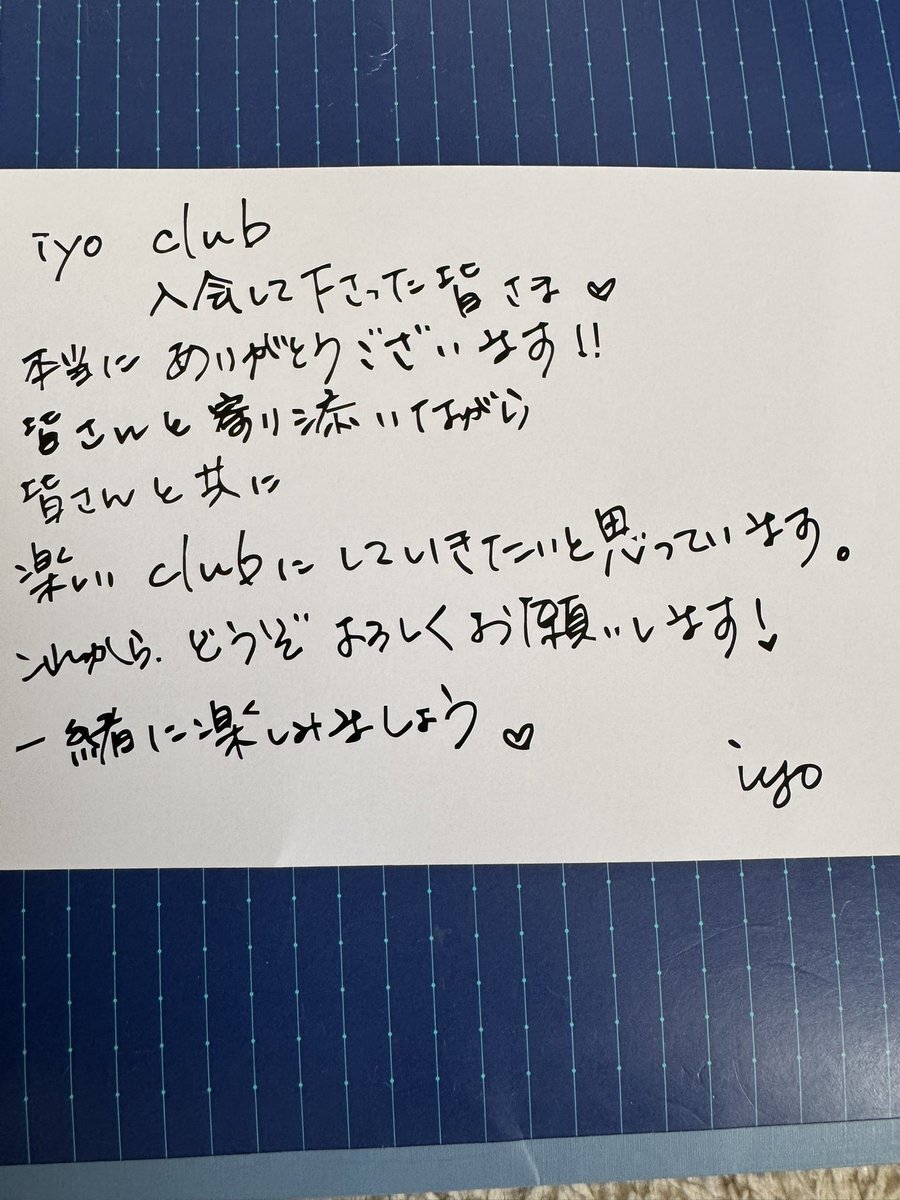 iyo club
入会して下さった皆さま♡
本当に ありがとうございます!!
皆さんと寄り添いながら
皆さんと共に
楽しい clubにしていきたいと思っています。
これから、どうぞ よろしくお願いします!
一緒に楽しみましょう♡
iyo